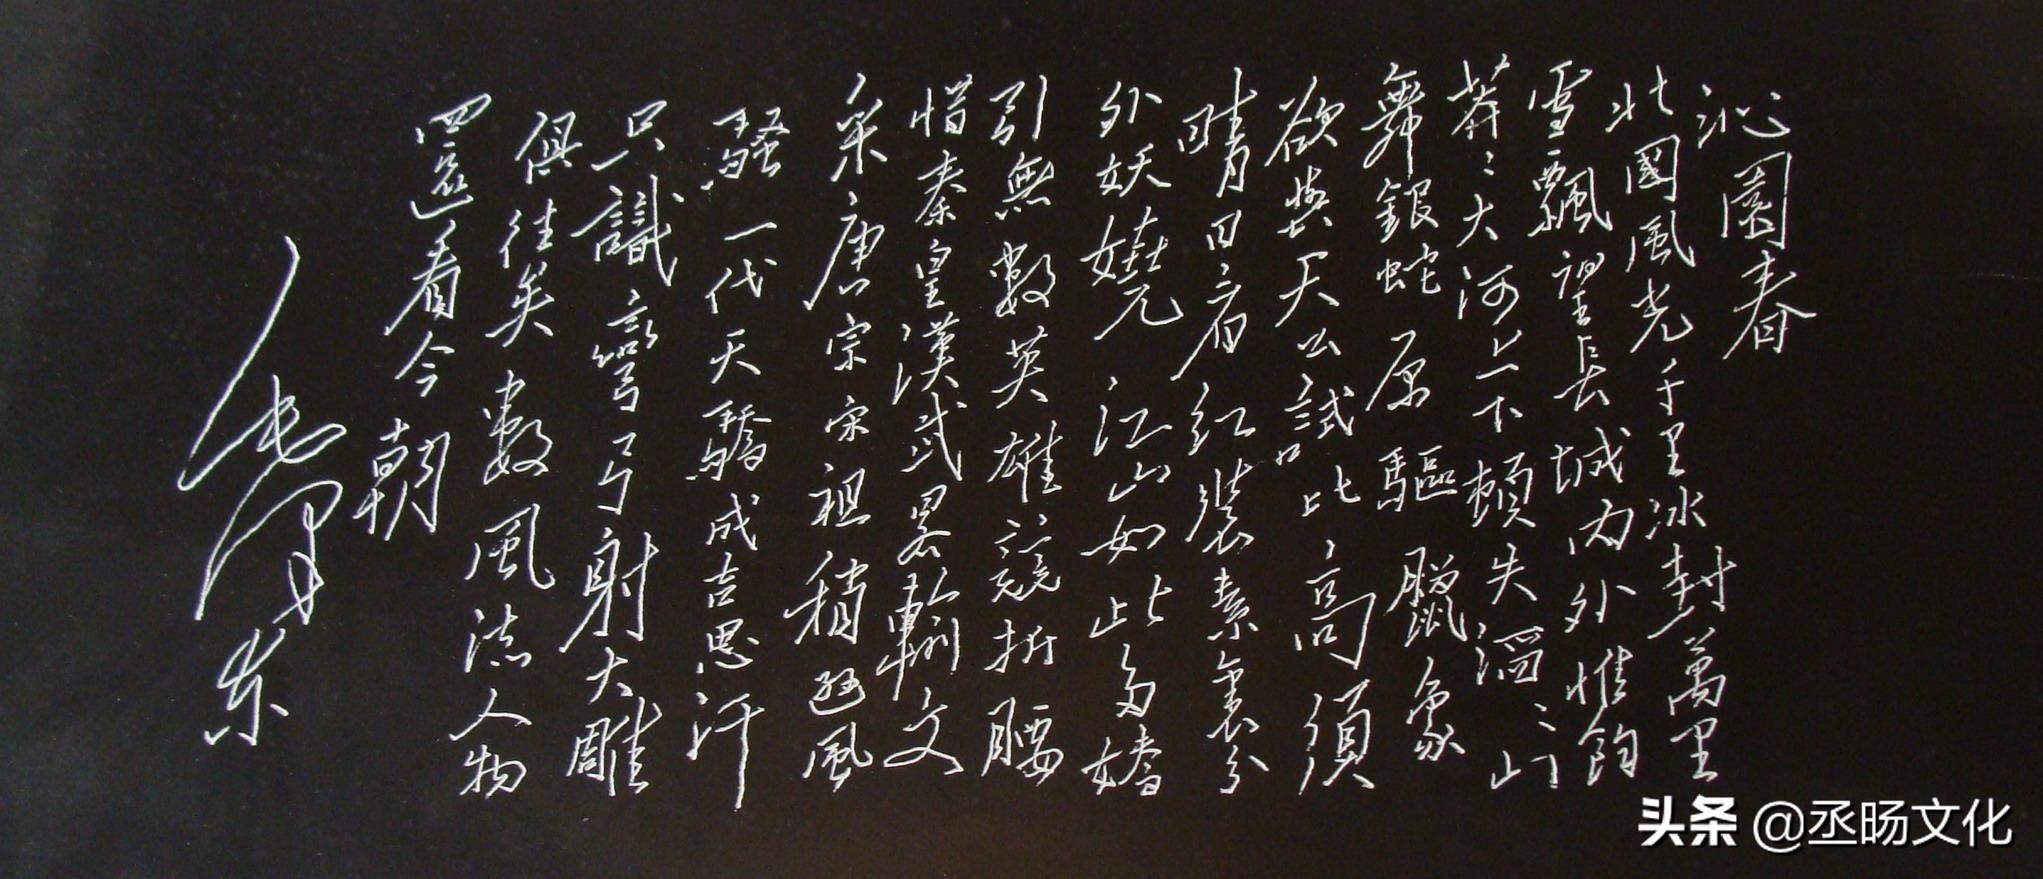 沁園春
北國風光千里冰封萬里
雪飄望長城內外惟餘
莽〻大河上下頓失滔〻山
舞銀蛇原驅臘象
欲與天公試比高須
晴日看紅裝素裹分
外妖嬈江山如此多嬌
引無數英雄競折腰
惜秦皇漢武畧輸文
采唐宗宋祖稍遜風
騷一代天驕成吉思汗
只識彎弓射大雕
俱往矣數風流人物
還看今朝
毛澤东
头条 @丞旸文化